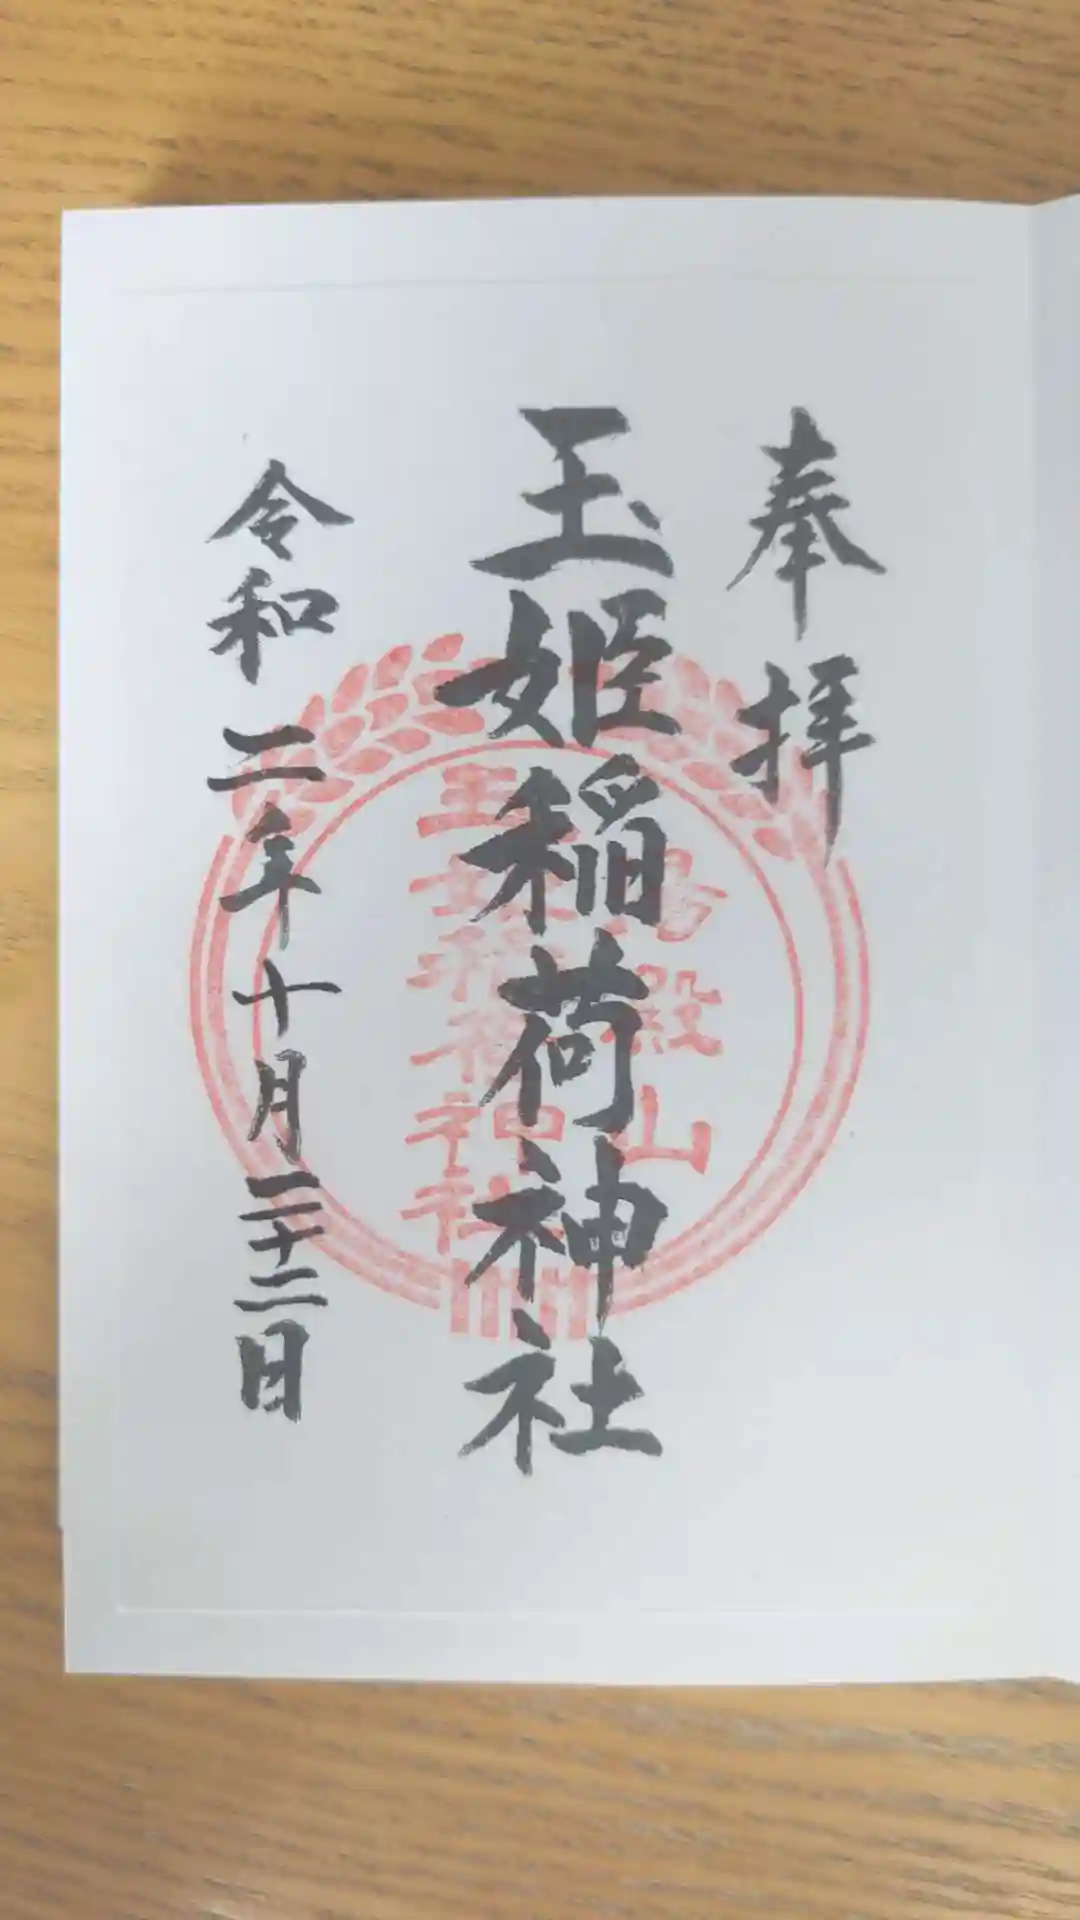 奉拝
玉姫稲荷神社
令和二年十月二十二日
殿山
玉姫稲荷神社